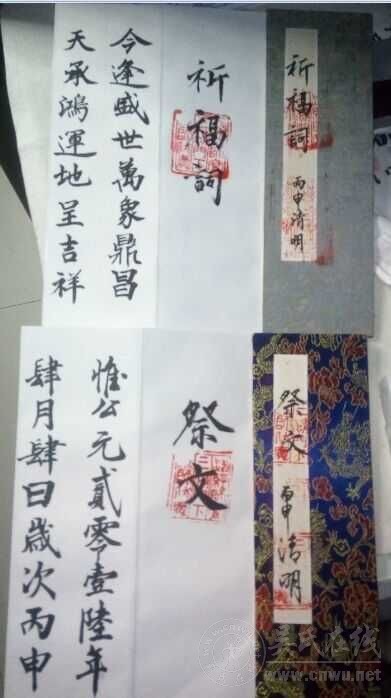 祈福詞
丙申清明
祈福詞
今逢盛世萬象鼎昌
天承鴻運地呈吉祥
祭文
丙申清明
祭文
惟公元貳零壹陸年
肆月肆日歲次丙申
吴氏在线
www.cnwu.net